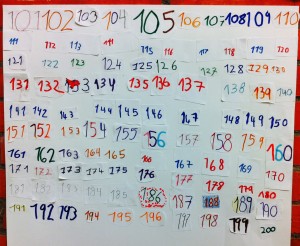 101 102 103 104 105 106 107 108 109 110
111 112 113 114 115 116 117 118 119 120
121 122 123 124 125 126 127 128 129 130
131 132 133 134 135 136 137 138 139 140
141 142 143 144 145 146 147 148 149 150
151 152 153 154 155 156 157 158 159 160
161 162 163 164 165 166 167 168 169 170
171 172 173 174 175 176 177 178 179 180
183 184 185 186 187 188 189 190
191 192 193 194 195 196 197 198 199 200